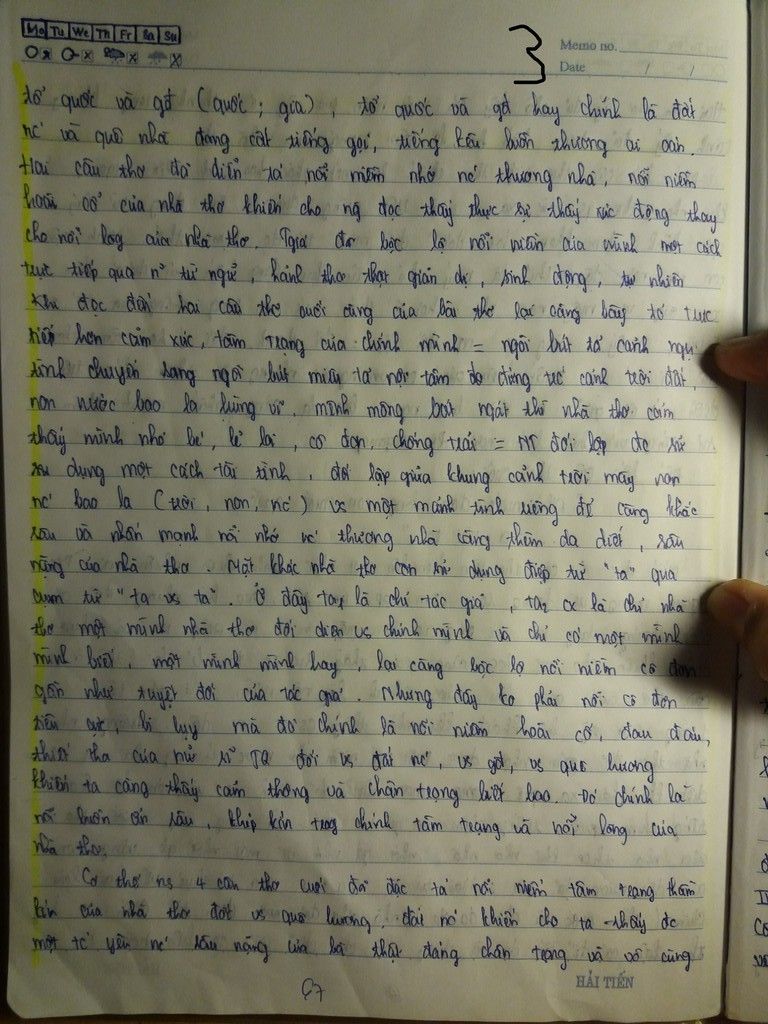 Mo Tu We Th Fr Sa Su
3
Memo no.
Date / /
tổ quốc và gđ (quốc ; gia), tổ quốc và gđ hay chính là đất
nc' và quê nhà đang cất tiếng gọi, tiếng kêu buồn thương ai oán.
Hai câu thơ đã diễn tả nỗi niềm nhớ nc' thương nhà, nỗi niềm
hoài cổ của nhà thơ khiến cho ng đọc thấy thực sự thấy xúc động thay
cho nỗi lòg của nhà thơ. Tgiả đã bộc lộ nỗi niềm của mình một cách
trực tiếp qua n~ từ ngữ, hành thơ thật giản dị, sinh động, tự nhiên
Khi đọc đến hai câu thơ cuối cùng của bài thơ lại càng bày tỏ trực
tiếp hơn cảm xúc, tâm trạng của chính mình = ngòi bút tả cảnh ngụ
tình chuyển sang ngòi bút miêu tả nội tâm do đứng trc' cảnh trời đất,
non nước bao la hùng vĩ, mênh mông bát ngát thì nhà thơ cảm
thấy mình nhỏ bé, lẻ loi, cô đơn, chống trải = NT đối lập đc sử
sử dụng một cách tài tình, đối lập giữa khung cảnh trời mây non
nc' bao la (trời, non, nc') vs một mảnh tình riêng để càng khắc
sâu và nhấn mạnh nỗi nhớ nc' thương nhà càng thêm da diết, sâu
nặng của nhà thơ. Mặt khác nhà thơ còn sử dụng điệp từ "ta" qua
cụm từ "ta vs ta". Ở đây ta1 là chỉ tác giả, ta2 cx là chỉ nhà
thơ một mình nhà thơ đối diện vs chính mình và chỉ có một mình
mình biết, một mình mình hay, lại càng bộc lộ nỗi niềm cô đơn
gần như tuyệt đối của tác giả. Nhưng đây ko phải nỗi cô đơn
tiêu cực, bi lụy mà đó chính là nỗi niềm hoài cổ, đau đáu,
thiết tha của nữ sĩ TQ đối vs đất nc', vs gđ, vs quê hương
khiến ta càng thấy cảm thông và chân trọng biết bao. Đó chính là
nỗi buồn ẩn sâu, khép kín trog chính tâm trạng và nỗi lòng của
nhà thơ.
Có thể ns 4 câu thơ cuối đã đặc tả nỗi niềm tâm trạng thầm
kín của nhà thơ đối vs quê hương, đất nc' khiến cho ta thấy đc
một tc' yêu nc' sâu nặng của bà thật đáng chân trọng và vô cùng
HẢI TIẾN